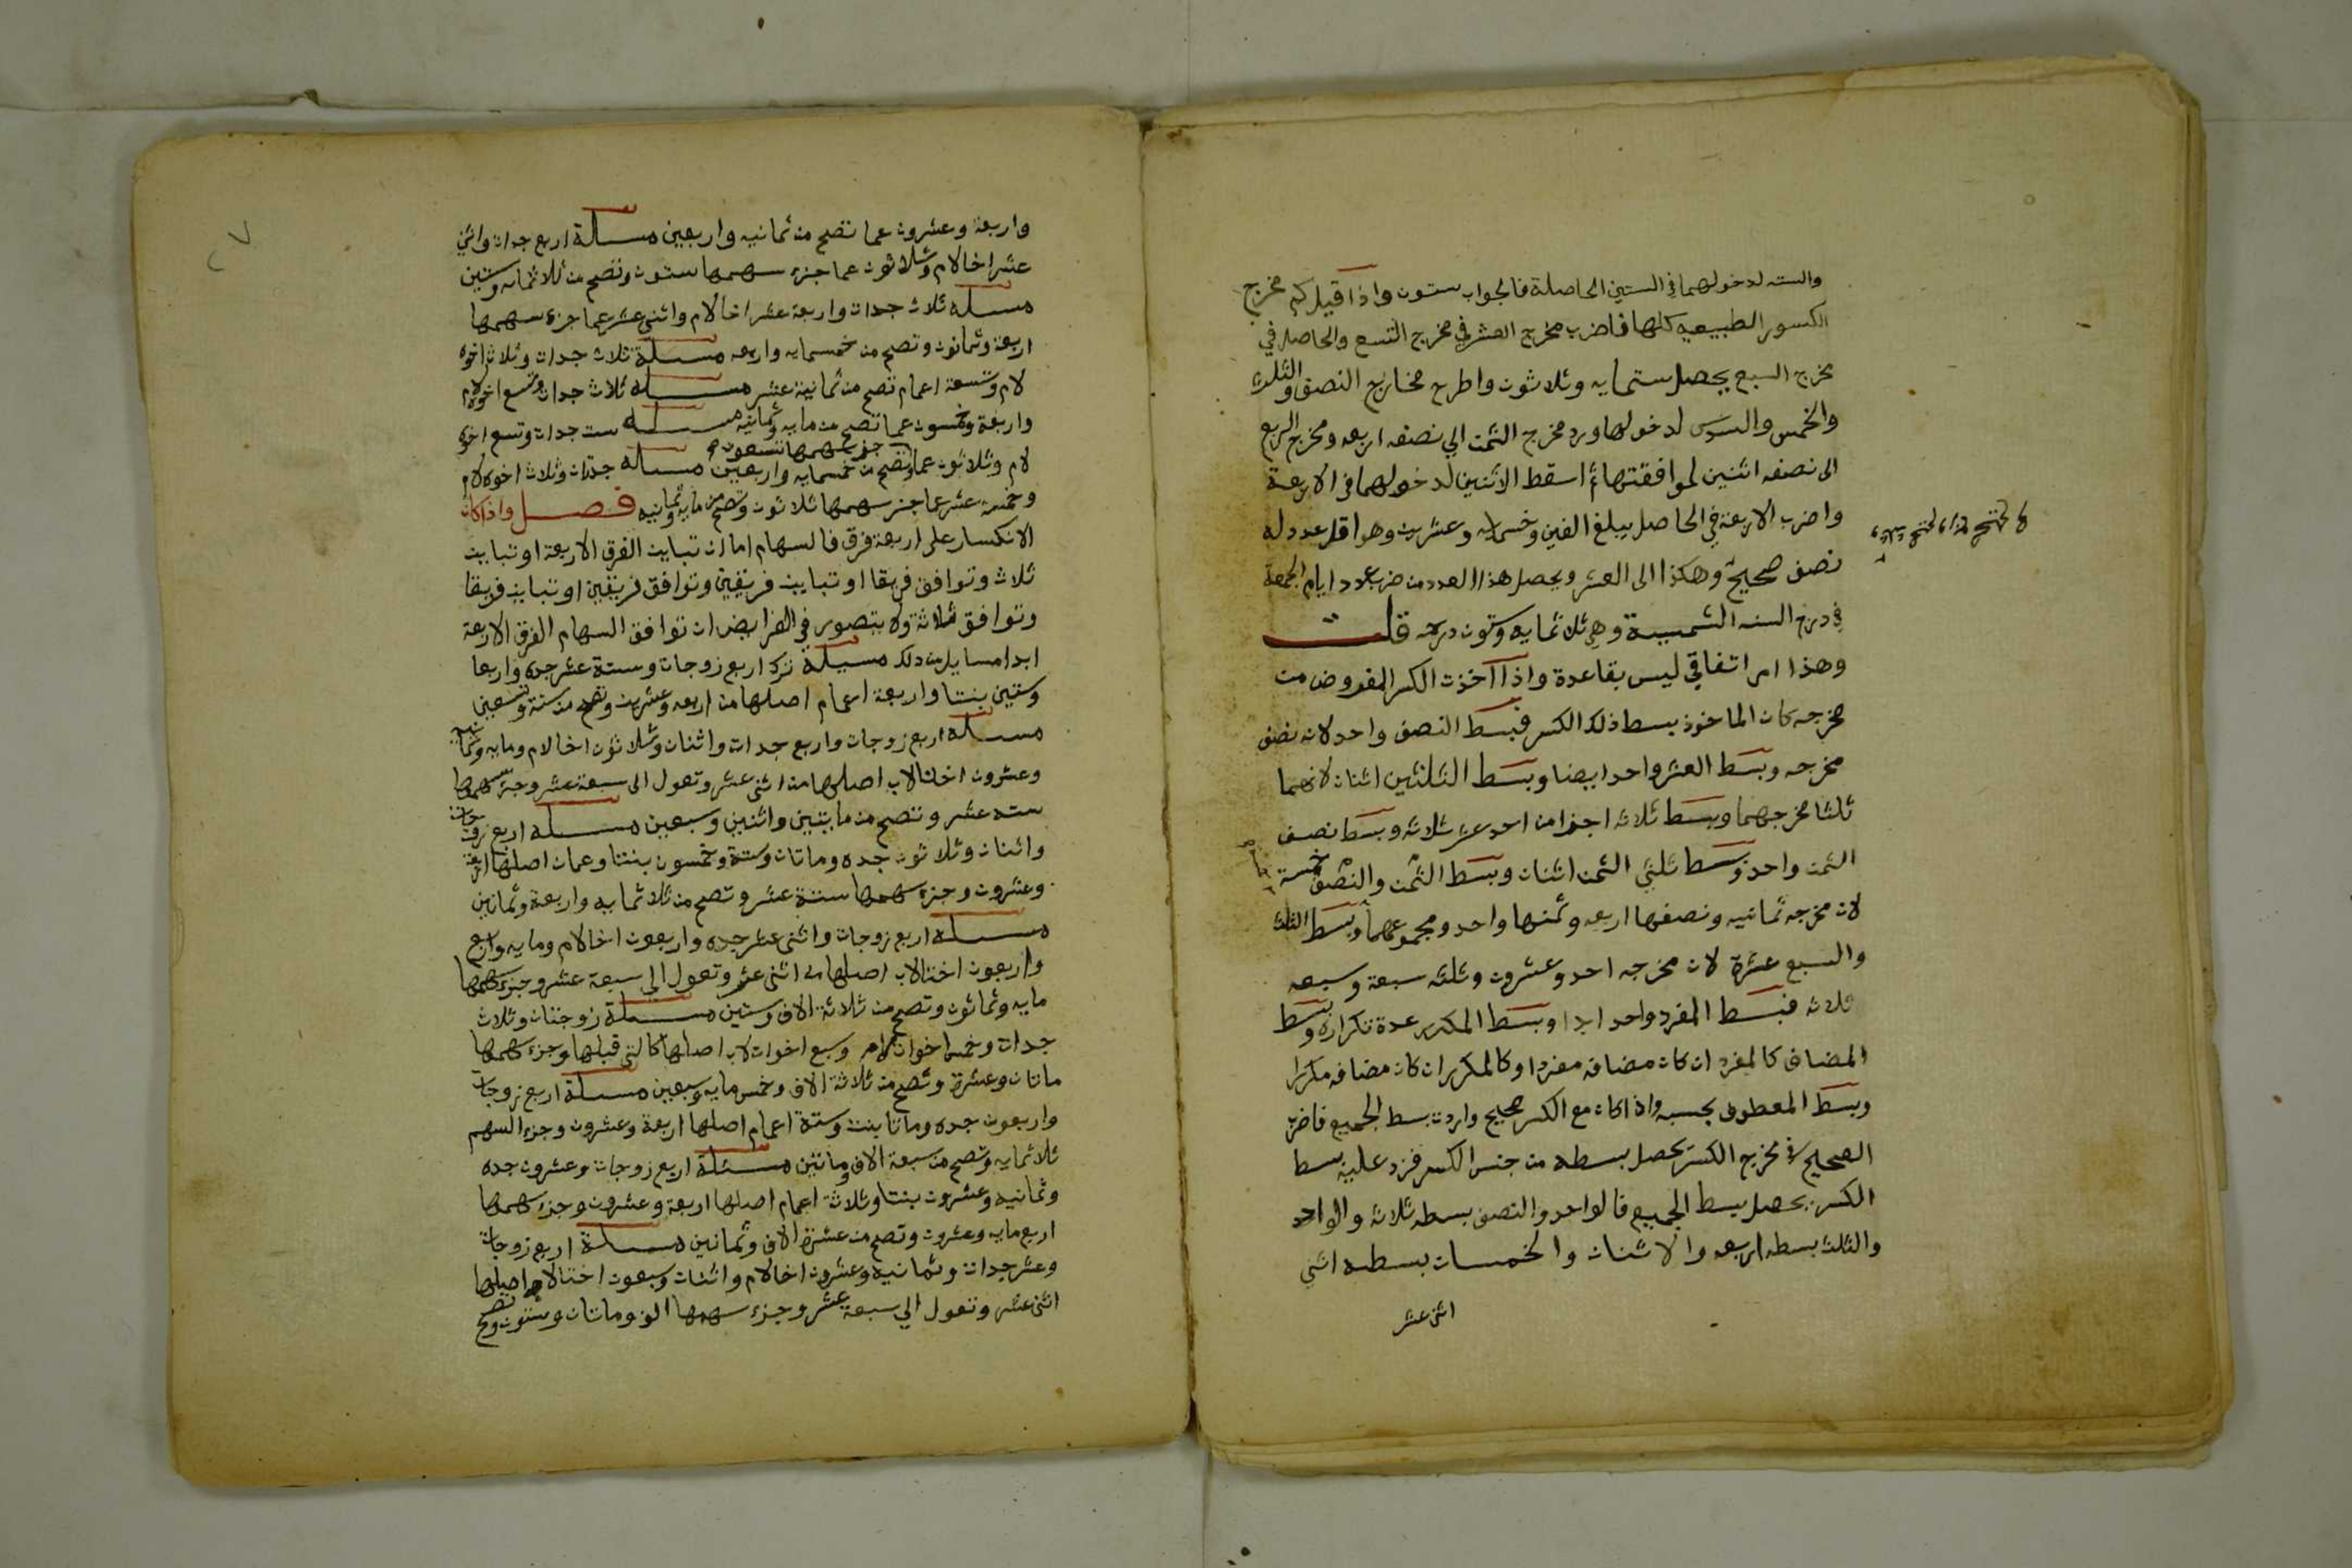 والسته لدخولهما في الستين الحاصلة فالجواب ستون واذا قيل كم مخرج
الكسور الطبيعيه كلها فاضرب مخرج العشر في مخرج التسع والحاصل في
مخرج السبع يحصل ستمايه وثلاثون واطرح مخارج النصف والثلث
والخمس والسدس لدخولها ورد مخرج الثمن الي نصفه اربعه ومخرج الربع
الى نصفه اثنين لموافقتها ثم اسقط الاثنين لدخولهما في الاربعة
واضرب الاربعة في الحاصل يبلغ الفين وخسمايه وعشرين وهو اقل عدد له
نصف صحيح وهكذا الى العشر ويحصل هذا العدد من ضرب عدد ايام الجمعة
في درج السنه الشمسية وهي ثلاثمايه وستون درجه قلت
وهذا امر اتفاقي ليس بقاعدة واذا اخذت الكسر المفروض من
مخرجه كان الماخوذ بسط ذلك الكسر فبسط النصف واحد لانه نصف
مخرجه وبسط العشر واحد ايضا وبسط الثلثين اثنان لانهما
ثلثا مخرجهما وبسط ثلاثه اجزا من احد عشر ثلاثه وبسط نصف
الثمن واحد وبسط ثلثي الثمن اثنان وبسط الثمن والنصف خمسة
لان مخرجه ثمانيه ونصفها اربعه وثمنها واحد ومجموعهما وبسط الثلث
والسبع عشرة لان مخرجه احد وعشرون وثلثه سبعة وسبعه
ثلاثه فبسط المفرد واحد ابدا وبسط المكرر عدة تكراره وبسط
المضاف كالمفرد ان كان مضافه مفردا وكالمكرر ان كان مضافه مكررا
وبسط المعطوف بحسبه واذا كان مع الكسر صحيح واردت بسط الجميع فاضرب
الصحيح في مخرج الكسر يحصل بسطه من جنس الكسر فزد عليه بسط
الكسر يحصل بسط الجميع فالواحد والنصف بسطه ثلاثه والواحد
والثلث بسطه اربعه والاثنان والخمسان بسطه اثني
اثني عشر
واربعة وعشرون عما تصح من ثمانيه واربعين مسألة اربع جدات واثني
عشر اخا لام وثلاثون عما جزء سهمها ستون وتصح من ثلاثمايه وستين
مسله ثلاث جدات واربعة عشر اخا لام واثني عشر عما جزء سهمها
اربعة وثمانون وتصح من خمسمايه واربعه مسلة ثلاث جدات وثلاث اخوه
لام وتسعة اعمام تصح من ثمانية عشر مسله ثلاث جدات وتسع اخوه لام
واربعة وخمسون عما تصح من مايه وثمانيه مسله ست جدات وتسع اخوه
لام وثلاثون عما جزء سهمها تسعون وتصح من خمسمايه واربعين مسله جدتان وثلاث اخوه لام
وخمسة عشر عما جزء سهمها ثلاثون وتصح من مايه وثمانيه فصل واذا كان
الانكسار على اربعة فرق فالسهام اما ان تباين الفرق الاربعة او تباين
ثلاث وتوافق فريقا او تباين فريقين وتوافق فريقين او تباين فريقا
وتوافق ثلاثة ولا يتصور في الفرايض ان توافق السهام الفرق الاربعة
ابدا مسايل من ذلك مسيلة ترك اربع زوجات وستة عشر جده واربعا
وستين بنتا واربعة اعمام اصلها من اربعه وعشرين وتصح من ستة وتسعين
مسلة اربع زوجات واربع جدات واثنان وثلاثون اخا لام ومايه وثمانيه
وعشرون اختا لاب اصلها من اثني عشر وتعول الى سبعة عشر وجزء سهمها
سته عشر وتصح من مايتين واثنين وسبعين مسله اربع زوجات
واثنان وثلاثون جده وماتان وستة وخمسون بنتا وعمان اصلها اربعة
وعشرون وجزء سهمها ستة عشر وتصح من ثلاثمايه واربعة وثمانين
مسله اربع زوجات واثني عشر جده واربعون اخا لام ومايه واربع
واربعون اختا لاب اصلها من اثني عشر وتعول الي سبعة عشر وجزء سهمها
مايه وثمانون وتصح من ثلاثة الاف وستين مسلة زوجتان وثلاث
جدات وخمس اخوات لام وسبع اخوات لاب اصلها كالتي قبلها وجزء سهمها
ماتان وعشرة وتصح من ثلاثة الاف وخمس مايه وسبعين مسلة اربع زوجات
واربعون جده وماتا بنت وستة اعمام اصلها اربعة وعشرون وجزء السهم
ثلاثمايه وتصح من سبعة الاف وماتين مسئلة اربع زوجات وعشرون جده
وثمانيه وعشرون بنتا وثلاثة اعمام اصلها اربعة وعشرون وجزء سهمها
اربع مايه وعشرون وتصح من عشرة الاف وثمانين مسلة اربع زوجات
وعشر جدات وثمانيه وعشرون اخا لام واثنان وسبعون اختا لاب اصلها
اثني عشر وتعول الي سبعة عشر وجزء سهمها الف وماتان وستون وتصح